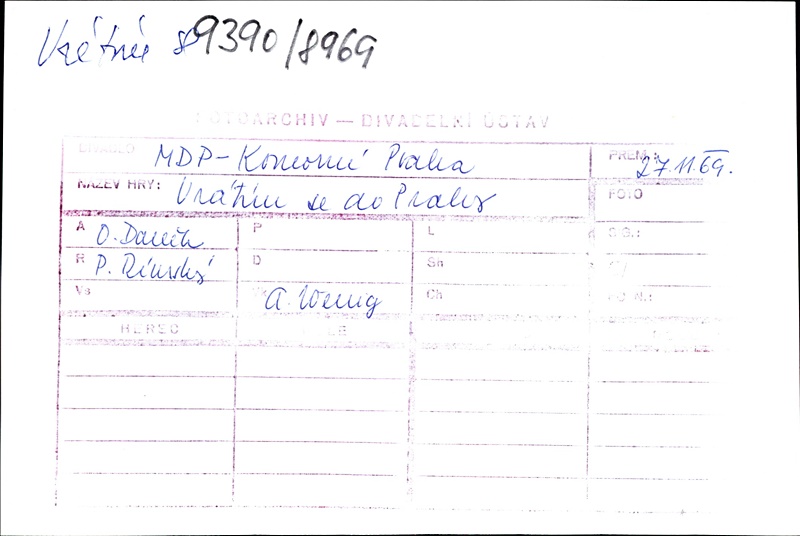 9390/8969
FOTOARCHIV — DIVADELNÍ ÚSTAV
DIVADLO MDP-Komorní Praha PREM.: 27.11.69.
NÁZEV HRY: Vrátím se do Prahy FOTO
A O. Daněk P L
R P. Rímský D Sn
Vs A. Wenig Ch
HEREC